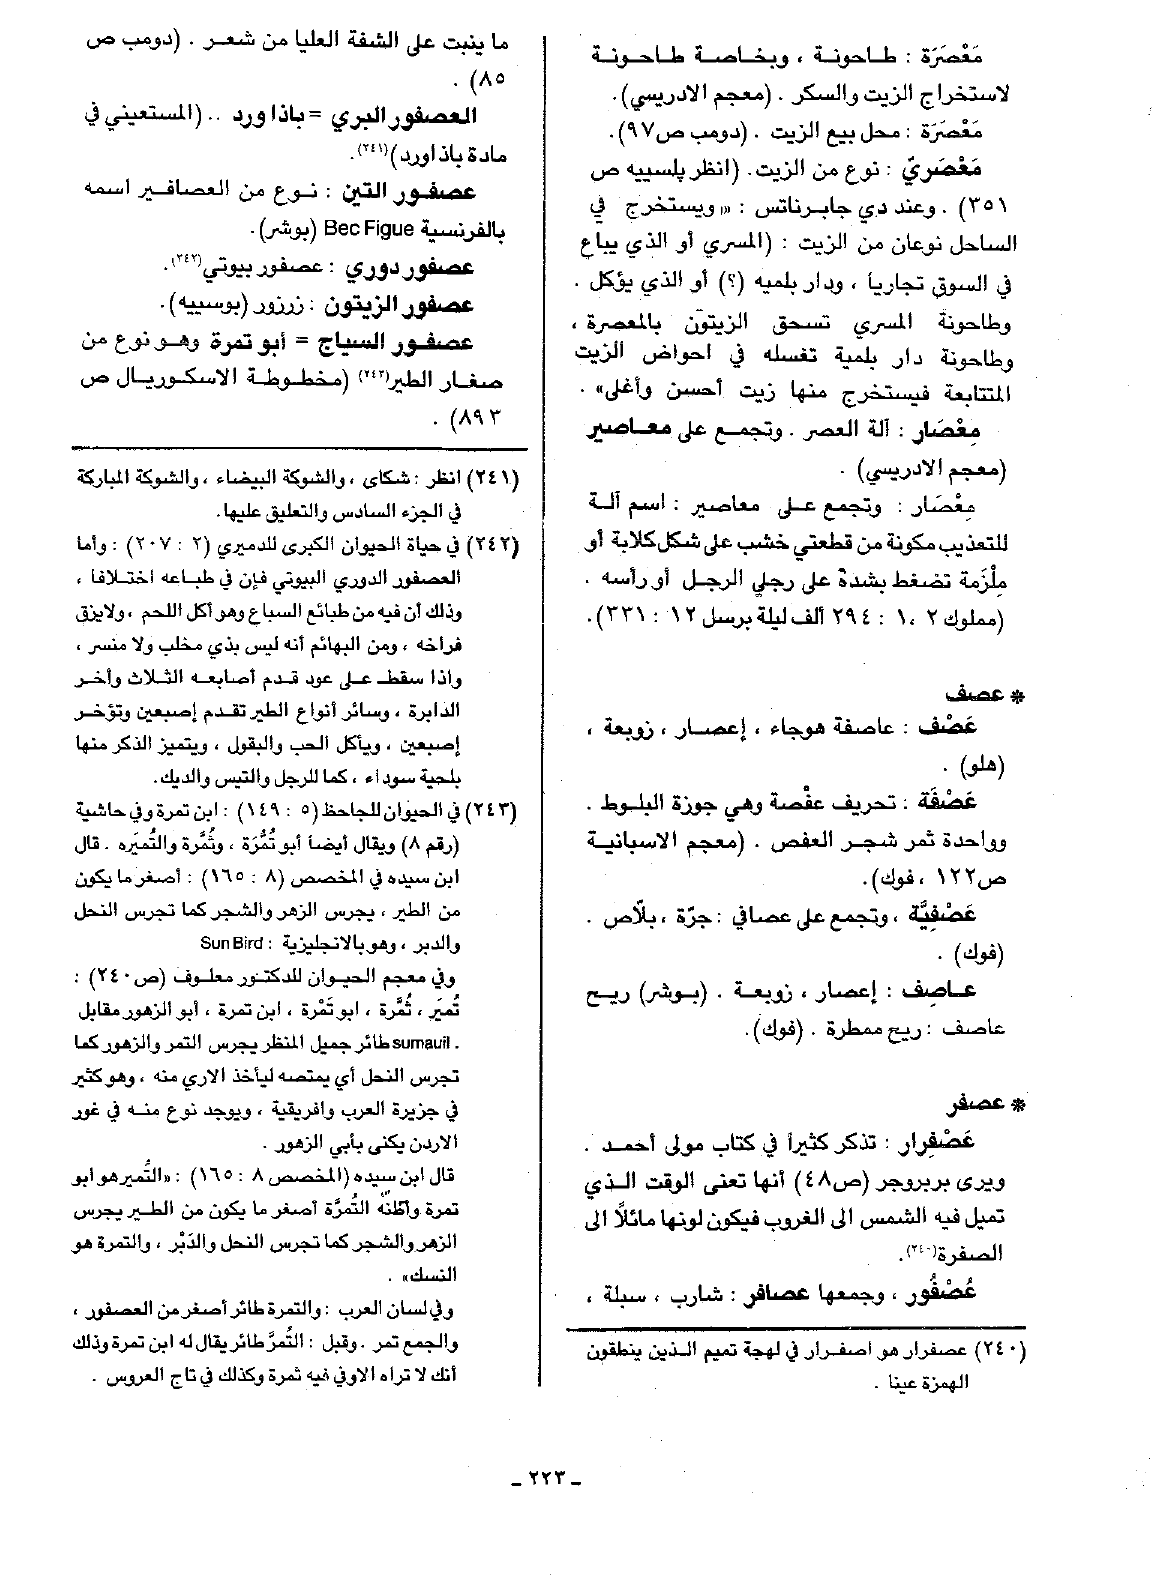 مَعْصَرَة : طـاحونـة ، وبخـاصـة طـاحـونـة
لاستخراج الزيت والسكر . (معجم الادريسي).
مَعْصَرَة : محل بيع الزيت . (دومب ص٩٧).
مَعْصَريّ : نوع من الزيت. (انظر پلسييه ص
٣٥١) . وعند دي جابرناتس : «ويستخرج في
الساحل نوعان من الزيت : (المسري أو الذي يباع
في السوق تجاريا ، ودار بلميه (؟) أو الذي يؤكل .
وطاحونة المسري تسحق الزيتون بالمعصرة ،
وطاحونة دار بلمية تغسله في احواض الزيت
المتتابعة فيستخرج منها زيت أحسن وأغلى» .
مِعْصَار : آلة العصر . وتجمـع على معـاصير
(معجم الادريسي) .
مِعْصَار : وتجمع عـلى معاصير : اسم آلـة
للتعذيب مكونة من قطعتي خشب على شكل كلابة أو
ملْزَمة تضغط بشدة على رجلي الرجل أو رأسه .
(مملوك ٢ ،١ : ٢٩٤ ألف ليلة برسل ١٢ : ٣٣١).
* عصف
عَصْف : عاصفة هوجاء ، إعصـار ، زوبعة ،
(هلو) .
عَصْفَة : تحريف عفْصة وهي جوزة البلـوط .
وواحدة ثمر شجـر العفص . (معجم الاسبانيـة
ص١٢٢ ، فوك).
عَصْفيَّة ، وتجمع على عصافي : جرّة ، بلاّص .
(فوك) .
عـاصِف : إعصار ، زوبعـة . (بـوشر) ريـح
عاصف : ريح ممطرة . (فوك).
* عصفر
عَصْفِرار : تذكر كثيراً في كتاب مولى أحمـد .
ويرى بربروجر (ص٤٨) أنها تعنى الوقت الـذي
تميل فيه الشمس الى الغروب فيكون لونها مائلاً الى
الصفرة(٢٤٠).
عُصْفُور ، وجمعها عصافر : شارب ، سبلة ،
(٢٤٠) عصفرار هو اصفـرار في لهجة تميم الـذين ينطقون
الهمزة عينا .
ما ينبت على الشفة العليا من شعـر . (دومب ص
٨٥) .
العصفور البري = باذاورد .. (المستعيني في
مادة باذاورد)(٢٤١).
عصفـور التين : نـوع من العصـافـير اسمه
بالفرنسية Bec Figue (بوشر).
عصفور دوري : عصفور بيوتي(٢٤٢).
عصفور الزيتون : زرزور (بوسييه).
عصفـور السياج = أبو تمرة وهـو نوع من
صغار الطير(٢٤٣) (مخطوطة الاسكوريال ص
٨٩٣) .
(٢٤١) انظر : شكاى ، والشوكة البيضاء ، والشوكة المباركة
في الجزء السادس والتعليق عليها.
(٢٤٢) في حياة الحيوان الكبرى للدميري (٢ : ٢٠٧) : وأما
العصفور الدوري البيوتي فإن في طبـاعه اختـلافا ،
وذلك أن فيه من طبائع السباع وهو أكل اللحم ، ولايزق
فراخه ، ومن البهائم أنه ليس بذي مخلب ولا منسر ،
واذا سقط عـلى عود قدم أصابعه الثلاث وأخـر
الدابرة ، وسائر أنواع الطير تقدم إصبعين وتؤخر
إصبعين ، ويأكل الحب والبقول ، ويتميز الذكر منها
بلحية سوداء ، كما للرجل والتيس والديك.
(٢٤٣) في الحيوان للجاحظ (٥ : ١٤٩) : ابن تمرة وفي حاشية
(رقم ٨) ويقال أيضاً أبو تُمُّرَة ، وتُمَّرة والتُّميّره . قال
ابن سيده في المخصص (٨ : ١٦٥) : أصغر ما يكون
من الطير ، يجرس الزهر والشجر كما تجرس النحل
والدبر ، وهو بالانجليزية : Sun Bird
وفي معجم الحيـوان للدكتـور معلـوف (ص٢٤٠) :
تُمَيّر ، تُمَّرة ، ابو تَمْرة ، ابن تمرة ، أبو الزهور مقابل
sumauil . طائر جميل المنظر يجرس التمر والزهور كما
تجرس النحل أي يمتصه ليأخذ الاري منه ، وهو كثير
في جزيرة العرب وافريقية ، ويوجد نوع منـه في غور
الاردن يكنى بأبي الزهور .
قال ابن سيده (المخصص ٨ : ١٦٥) : «التُّمير هو ابو
تمرة وأظنّه التُمرَّة أصغر ما يكون من الطـير يجرس
الزهر والشجر كما تجرس النحل والدَبْر ، والتمرة هو
النسك» .
وفي لسان العرب : والتمرة طائر أصغر من العصفور ،
والجمع تمر . وقيل : التُمرَّ طائر يقال له ابن تمرة وذلك
أنك لا تراه الا وفي فيه ثمرة وكذلك في تاج العروس .
ـ ٢٢٣ ـ